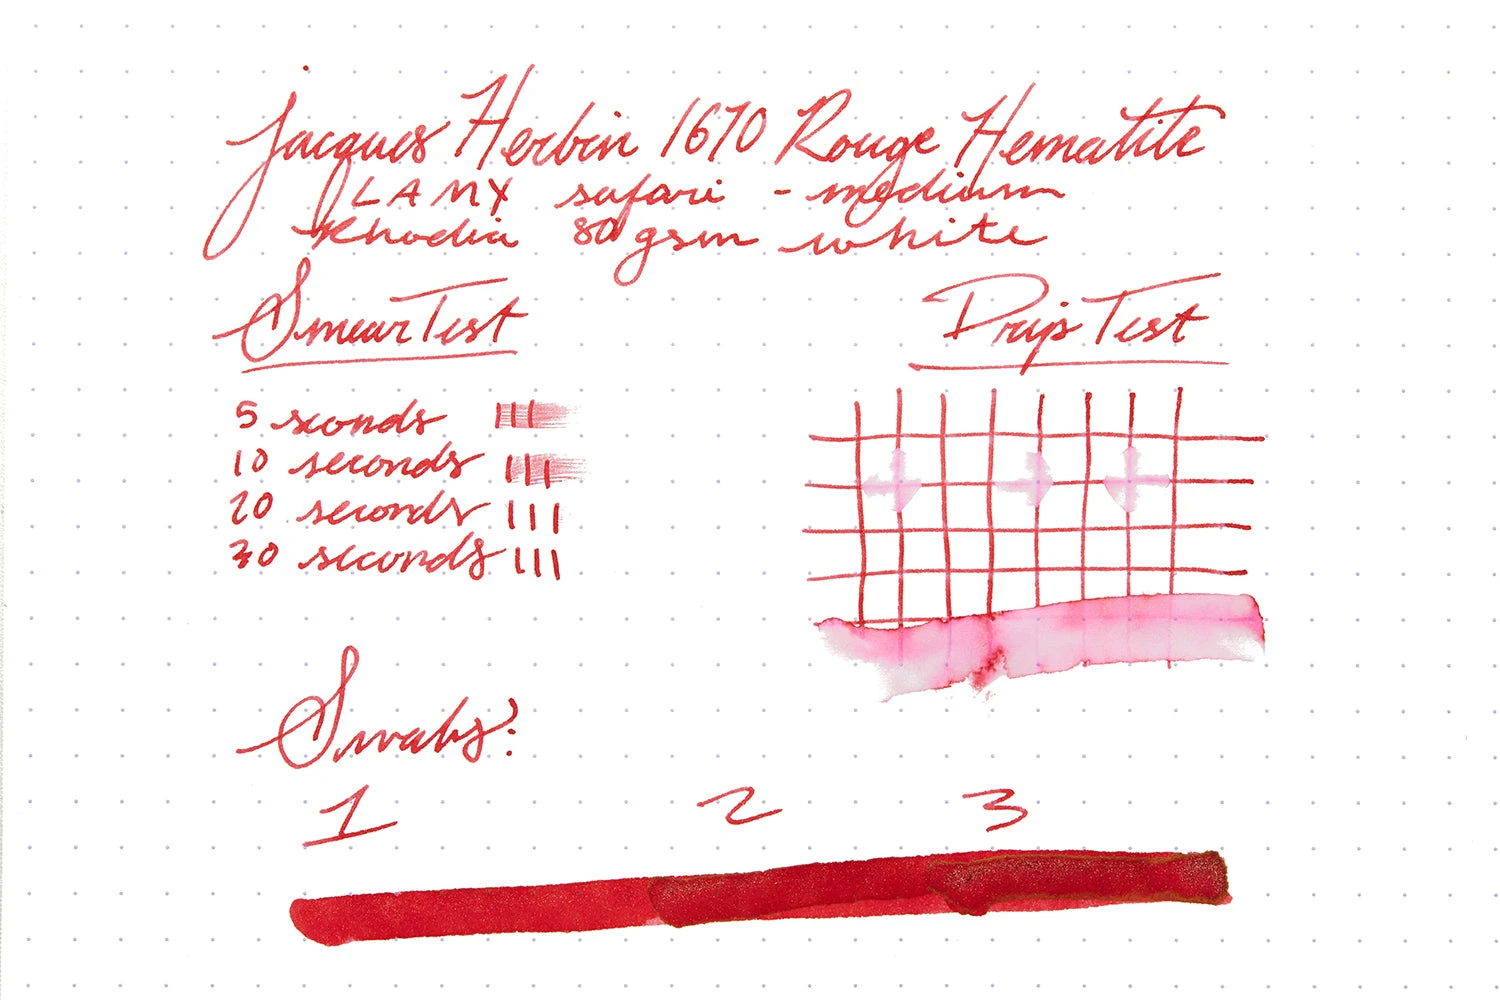 Jacques Herbin 1670 Rouge Hematite
LAMY safari - medium
Rhodia 80 gsm white
Smear Test
Drip Test
5 seconds
10 seconds
20 seconds
30 seconds
Swabs:
1 2 3